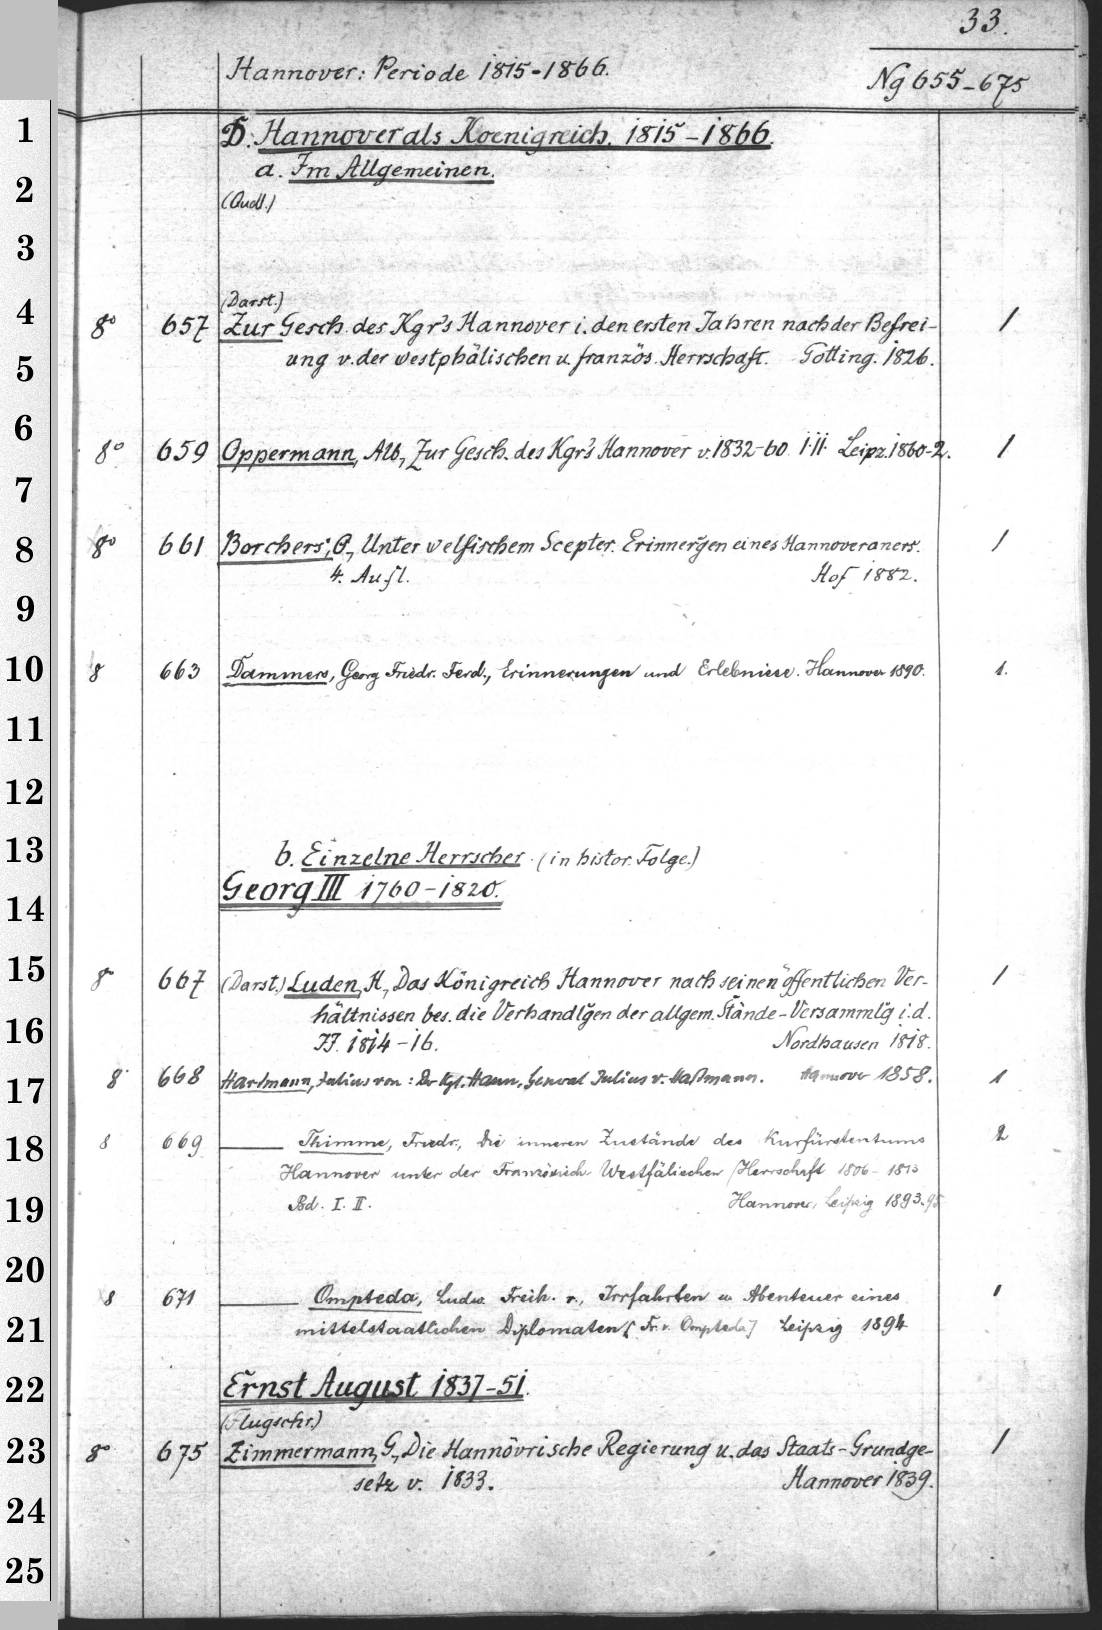 33.
Hannover: Periode 1815-1866.
Ng 655-675
1
D. Hannover als Koenigreich. 1815-1866.
a. Im Allgemeinen.
2
(Qudl.)
3
(Darst.)
4
8° 657 Zur Gesch. des Kgr's Hannover i. den ersten Jahren nach der Befrei- 1
ung v. der westphälischen u. französ. Herrschaft. Götting. 1826.
5
6
8° 659 Oppermann, Alb., Zur Gesch. des Kgr's Hannover v. 1832-60. I.II. Leipz. 1860-2. 1
7
8
8° 661 Borchers, Unter welfischem Scepter. Erinnerg̅en eines Hannoveraners. 1
4. Aufl. Hof 1882.
9
10
8 663 Dammers, Georg Friedr. Ferd., Erinnerungen und Erlebnisse. Hannover 1890. 1.
11
12
13
b. Einzelne Herrscher. (in histor. Folge.)
Georg III 1760-1820.
14
15
8° 667 (Darst.) Luden, H., Das Königreich Hannover nach seinen öffentlichen Ver- 1
hältnissen bes. die Verhandlg̅en der allgem. Stände-Versammlg̅ i. d.
16
JJ. 1814-16. Nordhausen 1818.
17
8° 668 Hartmann, Julius von: Der Kgl. Hann. General Julius v. Hartmann. Hannover 1858. 1
18
8 669 ——— Thimme, Friedr., Die inneren Zustände des Kurfürstentums 2
Hannover unter der Französisch-Westfälischen Herrschaft 1806-1813
19
Bd. I. II. Hannover, Leipzig 1893-95
20
8 671 ——— Ompteda, Ludw. Freih. v., Irrfahrten u. Abenteuer eines 1
21
mittelstaatlichen Diplomaten [Fr. v. Ompteda] Leipzig 1894
22
Ernst August 1837-51.
(Flugschr.)
23
8° 675 Zimmermann, G., Die Hannövrische Regierung u. das Staats-Grundge- 1
setz v. 1833. Hannover 1839.
24
25